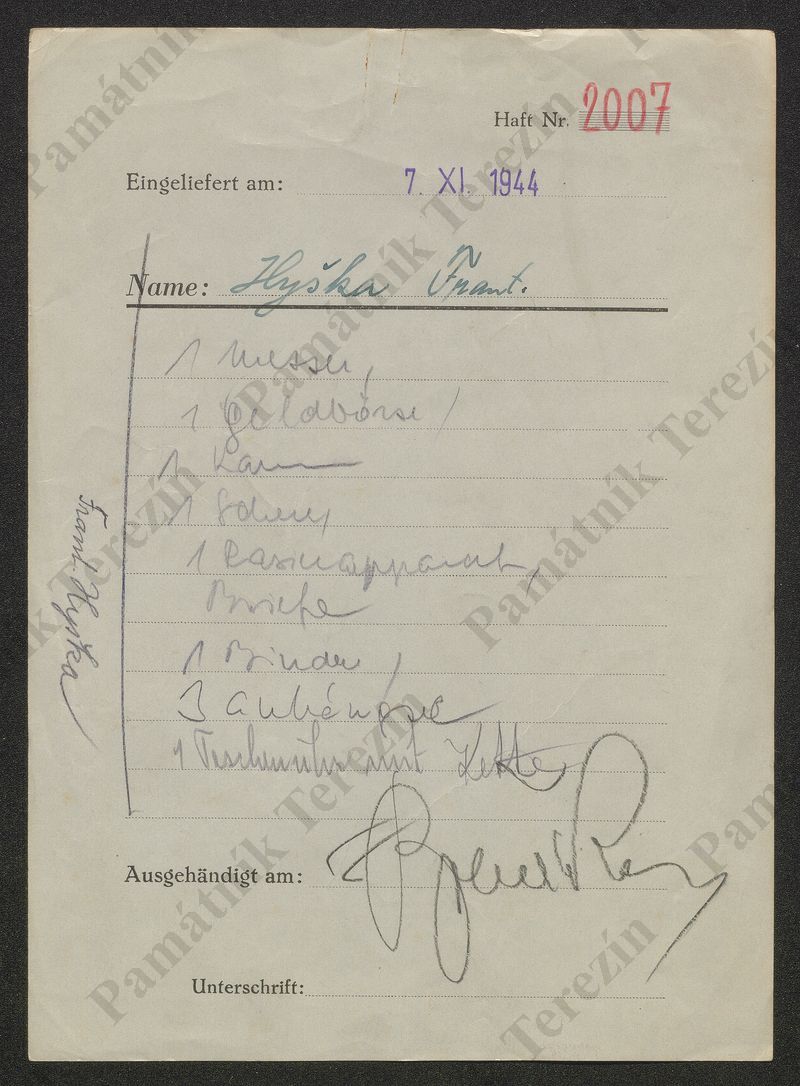 Haft Nr. 2007
Eingeliefert am: 7. XI. 1944
Name: Hyška Frant.
1 Messer,
1 Geldbörse,
1 Kamm
1 Schere,
1 Rasierapparat,
Briefe
1 Binder,
3 Anhängsel
1 Taschenuhr mit Kette
Frant. Hyška
Ausgehändigt am:
Unterschrift:
Památník Terezín
Památník Terezín
Památník Terezín
Památník Terezín